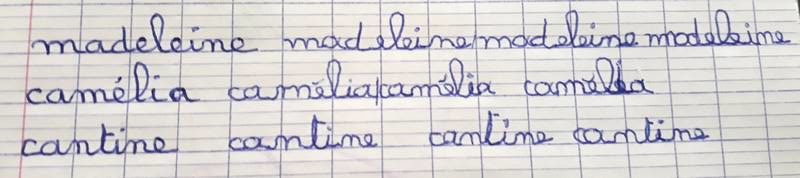 madeleine madeleine madeleine madeleine
camélia camélia camélia camélia
cantine cantine cantine cantine